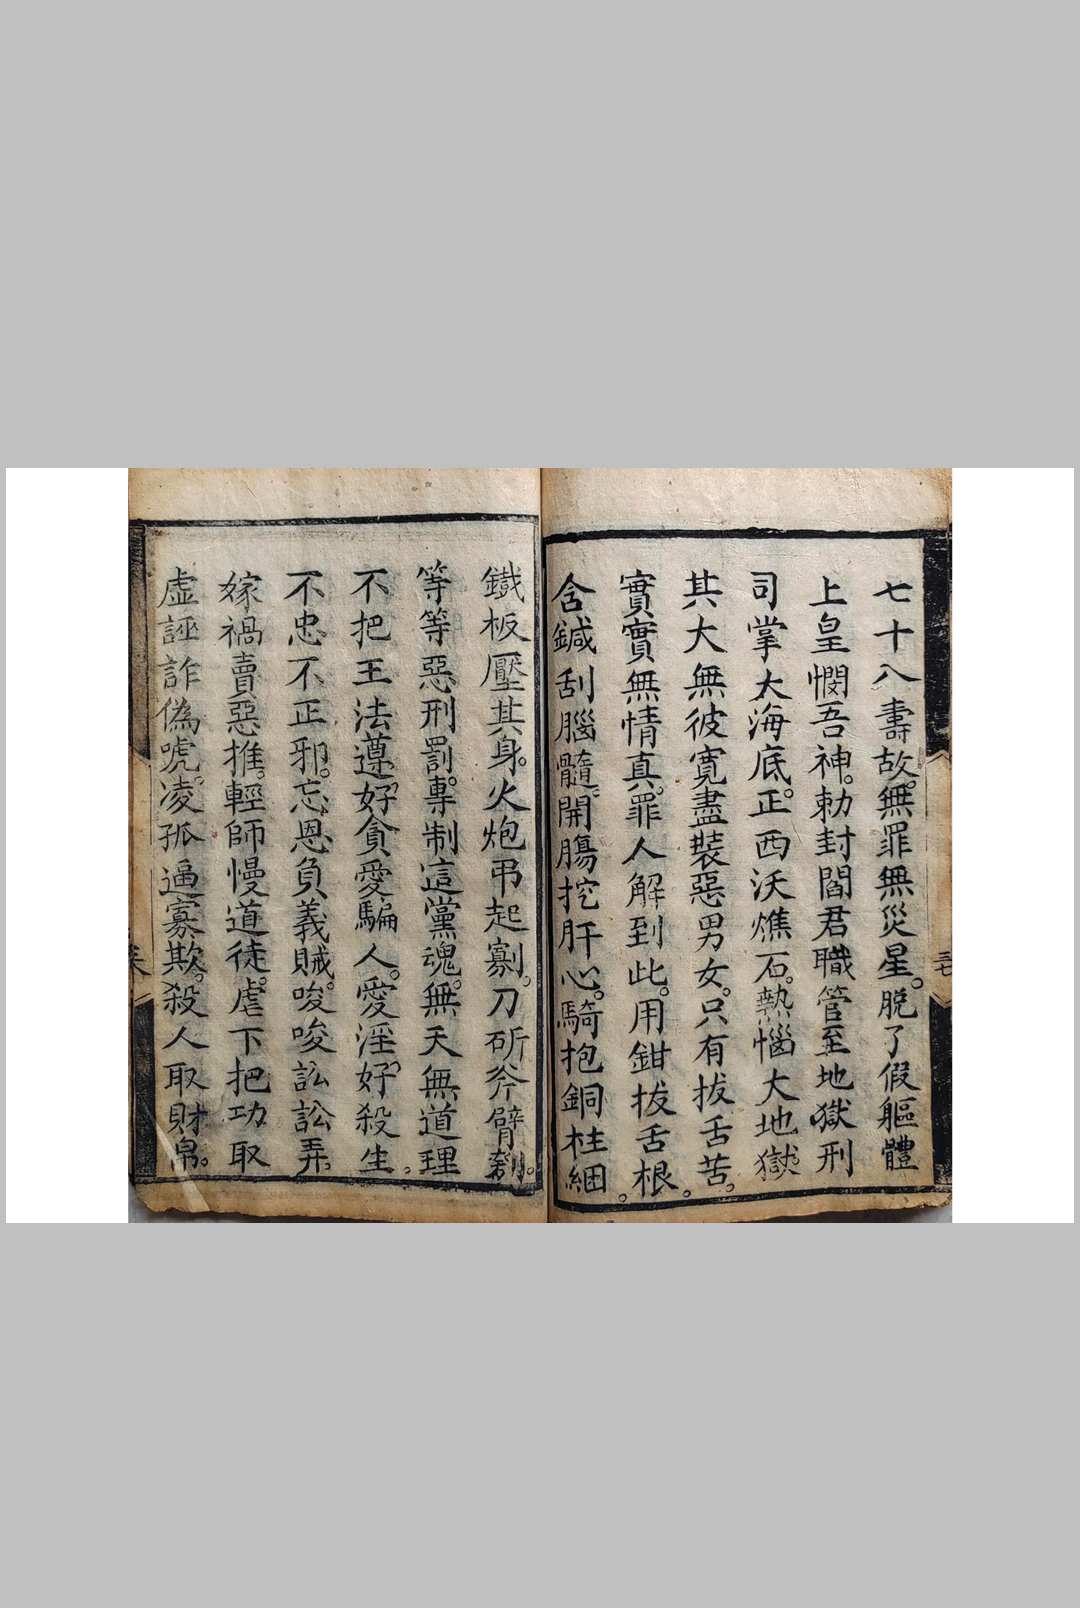 七十八壽故。無罪無災星。脫了假軀體
上皇憫吾神。勅封閻君職管至地獄刑
司掌大海底。正西沃燋石。熱惱大地獄。
其大無彼寬盡裝惡男女。只有拔舌苦。
實實無情真。罪人解到此。用鉗拔舌根。
含鍼刮腦髓。開腸挖肝心。騎抱銅柱綑。
鐵板壓其身。火炮弔起剮。刀斫斧臂剢。
等等惡刑罰。專制這黨魂。無天無道理
不把王法遵。好貪愛騙人。愛淫好殺生。
不忠不正邪。忘恩負義賊。唆唆訟訟弄。
嫁禍賣惡推。輕師慢道徒。虐下把功取
虛誣詐偽唬。凌孤逼寡欺。殺人取財帛。
三七